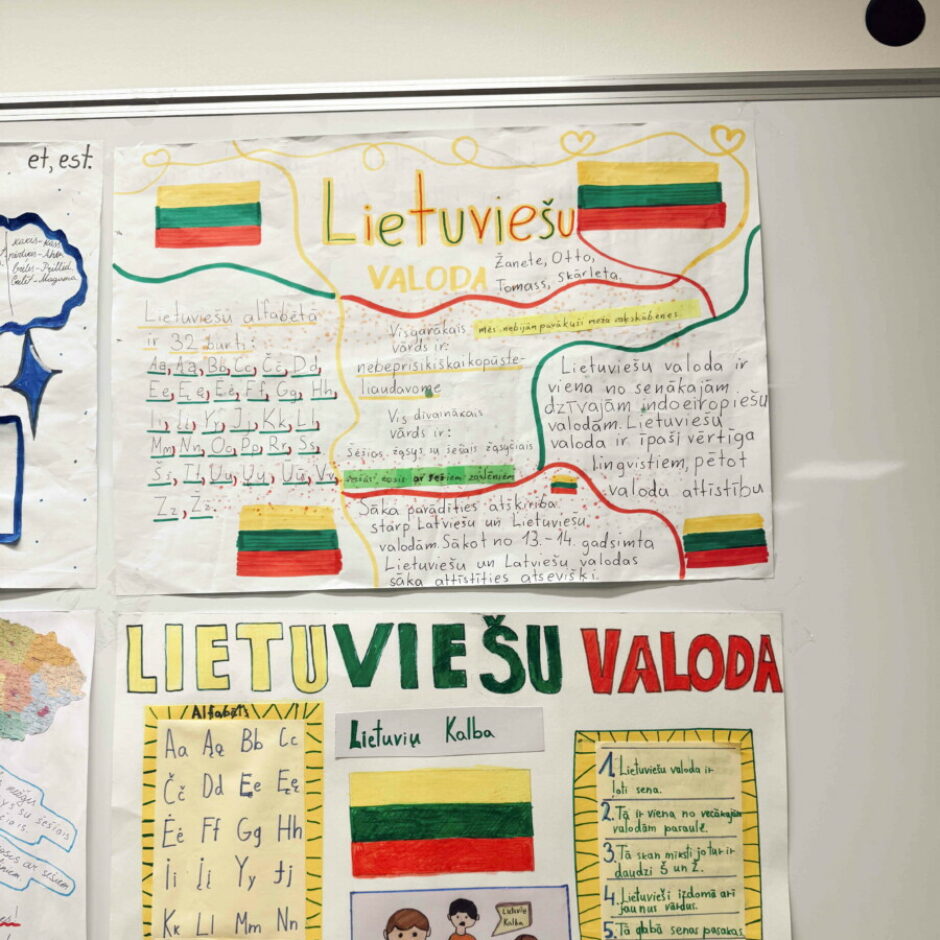 et, est.
Lietuviešu
VALODA
Žanete, Otto,
Tomass, Skārleta.
Lietuviešu alfabētā
ir 32 burti:
Aa, Ąą, Bb, Cc, Čč, Dd,
Ee, Ęę, Ėė, Ff, Gg, Hh,
Ii, Įį, Yy, Jj, Kk, Ll,
Mm, Nn, Oo, Pp, Rr, Ss,
Šš, Tt, Uu, Ųų, Ūū, Vv,
Zz, Žž.
Visgarākais
vārds ir:
nebeprisikiškiakopūste-
liaudavome
mēs nebijām
meža
Vis dīvainākais
vārds ir:
Šešios žąsys su šešiais žąsyčiais
ar sešiem zoslēniem
Lietuviešu valoda ir
viena no senākajām
dzīvajām indoeiropiešu
valodām. Lietuviešu
valoda ir īpaši vērtīga
lingvistiem, pētot
valodu attīstību
Sāka parādīties atšķirība
starp Latviešu un Lietuviešu
valodām. Sākot no 13.-14. gadsimta
Lietuviešu un Latviešu valodas
sāka attīstīties atsevišķi.
LIETUVIEŠU VALODA
Alfabēts
Aa Ąą Bb Cc
Čč Dd Ee Ęę
Ėė Ff Gg Hh
Ii Įį Yy Jj
Kk Ll Mm Nn
Lietuvių Kalba
Lietuvių
Kalba
1. Lietuviešu valoda ir
ļoti sena.
2. Tā ir viena no vecākajām
valodām pasaulē.
3. Tā skan mīksti jo tur ir
daudzi Š un Ž.
4. Lietuvieši izdomā arī
jaunus vārdus.
5. Tā glabā senas pasakas